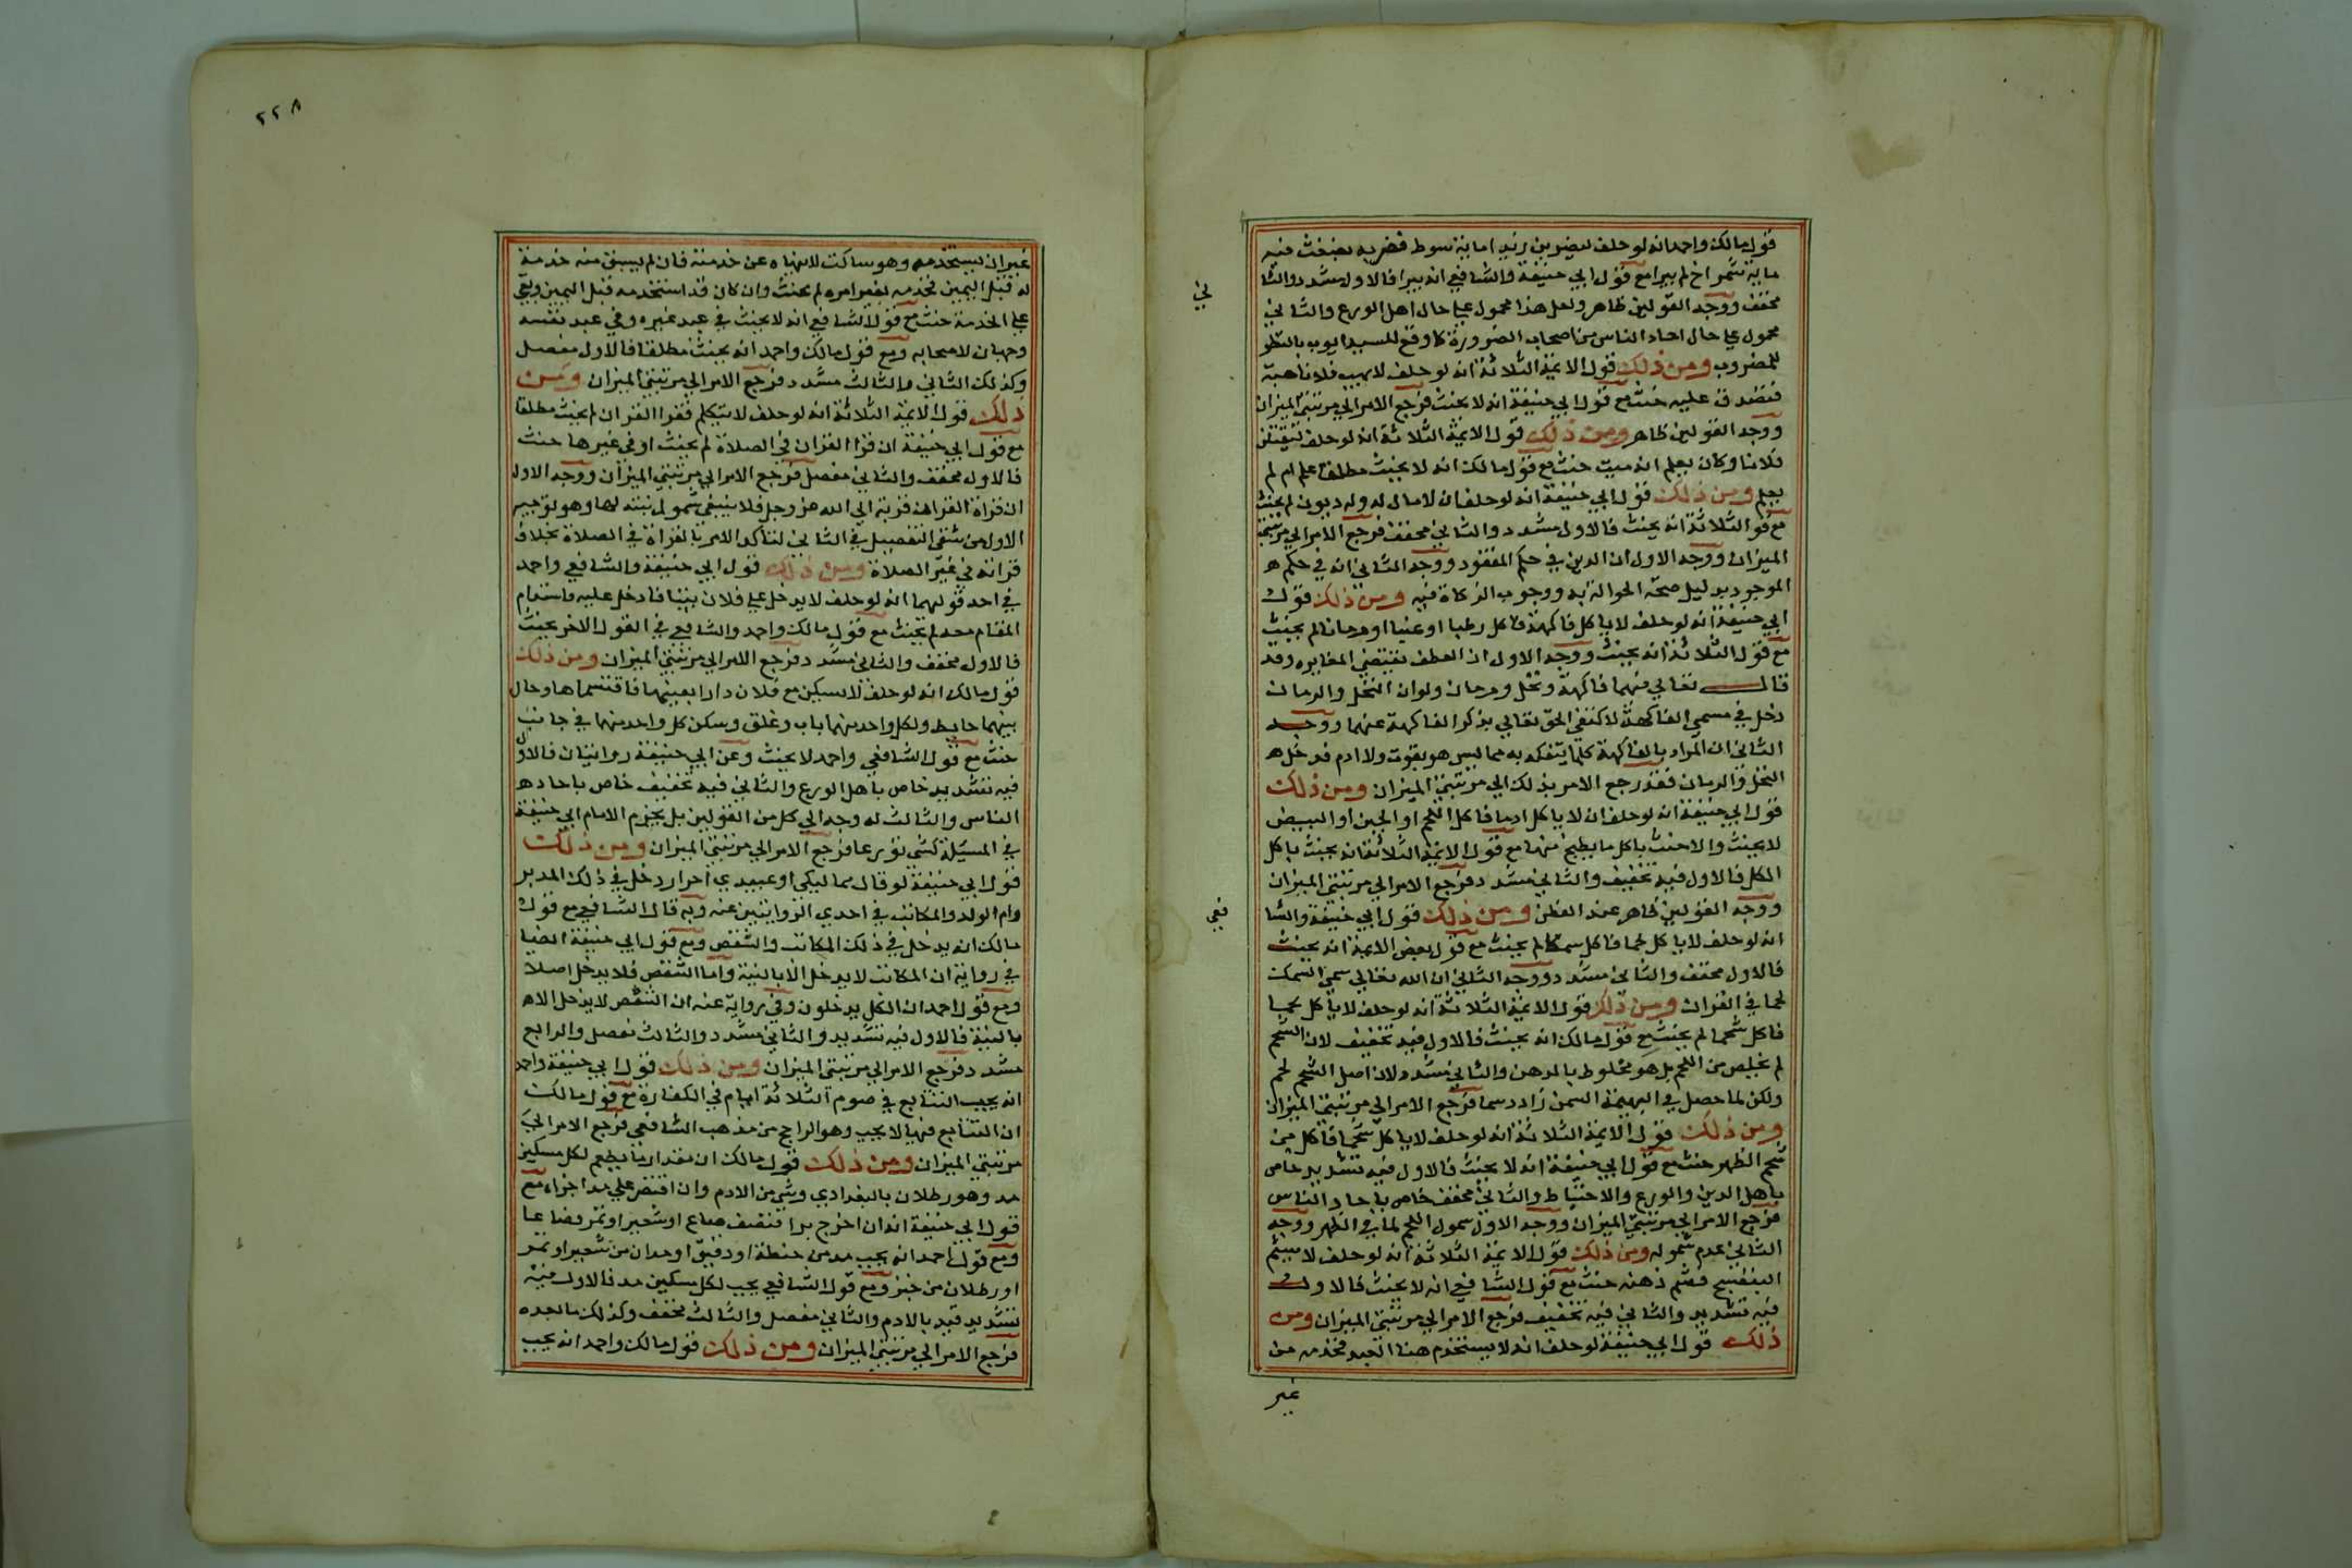 قول مالك واحمد انه لو حلف ليضربن زيدا ماية سوط فضربه بضغث فيه
ماية شمراخ لم يبرا مع قول ابي حنيفة والشافعي انه يبرا فالاول مشدد والثا
ني
مخفف ووجه القولين ظاهر ولعل هذا محمول علي حال اهل الورع والثاني
محمول علي حال احاد الناس من اصحاب الضرورة كما وقع للسيد ايوب بالنظر
للمضروب ومن ذلك قول الايمة الثلاثة انه لو حلف لا يهب فلانا هبة
فتصدق عليه حنث مع قول ابي حنيفة انه لا يحنث فرجع الامر الي مرتبتي الميزان
ووجه القولين ظاهر ومن ذلك قول الايمة الثلاثة انه لو حلف ليقتلن
فلانا وكان يعلم انه ميت حنث مع قول مالك انه لا يحنث مطلقا علم ام لم
يعلم ومن ذلك قول ابي حنيفة انه لو حلف ان لا مال له وله ديون لم يحنث
مع قو الثلاثة انه يحنث فالاول مشدد والثاني مخفف فرجع الامر الي مرتبتي
الميزان ووجه الاول ان الدين في حكم المفقود ووجه الثاني انه في حكم
الموجود بدليل صحة الحوالة به ووجوب الزكاة فيه ومن ذلك قول
ابي حنيفة انه لو حلف لا ياكل فاكهة فاكل رطبا او عنبا او رمانا لم يحنث
مع قول الثلاثة انه يحنث ووجه الاول ان العطف يقتضي المغايره وقد
قال تعالي فيهما فاكهة ونخل ورمان ولو ان النخل والرمان
دخل في مسمي الفاكهة لاكتفي الحق تعالي بذكر الفاكهة عنهما ووجه
الثاني ان المراد بالفاكهة كلما يتفكه به مما ليس هو بقوت ولا ادم فدخل
النخل والرمان فقد رجع الامر بذلك الي مرتبتي الميزان ومن ذلك
قول ابي حنيفة انه لو حلف ان لا ياكل ادما فاكل اللحم او الجبن او البيض
لا يحنث والا حنث باكل ما يطبخ منها مع قول الايمة الثلاثة انه يحنث باكل
الكل فالاول فيه تخفيف والثاني مشدد فرجع الامر الي مرتبتي الميزان
ووجه القولين ظاهر عند الفطن ومن ذلك قول ابي حنيفة والشا
فعي
انه لو حلف لا ياكل لحما فاكل سمكا لم يحنث مع قول بعض الايمة انه يحنث
فالاول مخفف والثاني مشدد ووجه الثاني ان الله تعالي سمي السمك
لحما في القران ومن ذلك قول الايمة الثلاثة انه لو حلف لا ياكل لحما
فاكل شحما لم يحنث مع قول مالك انه يحنث فالاول فيه تخفيف لان الشحم
لم يخلص من اللحم بل هو مخلوط بالدهن والثاني مشدد لان اصل الشحم لحم
ولكن لما حصل في البهيمة السمن زاد دسما فرجع الامر الي مرتبتي الميزان
ومن ذلك قول الايمة الثلاثة انه لو حلف لا ياكل شحما فاكل من
شحم الظهر حنث مع قول ابي حنيفة انه لا يحنث فالاول فيه تشديد خاص
باهل الدين والورع والاحتياط والثاني مخفف خاص باحاد الناس
فرجع الامر الي مرتبتي الميزان ووجه الاول شمول اللحم لما في الظهر ووجه
الثاني عدم شموله ومن ذلك قول الايمة الثلاثة انه لو حلف لا يشم
البنفسج فشم دهنه حنث مع قول الشافعي انه لا يحنث فالاول
فيه تشديد والثاني فيه تخفيف فرجع الامر الي مرتبتي الميزان ومن
ذلك قول ابي حنيفة لو حلف انه لا يستخدم هذا العبد فخدمه من
غير
٢٢٨
غير ان يستخدمه وهو ساكت لا ينهاه عن خدمته فان لم يسبق منه خدمة
له قبل اليمين فخدمه بغير امره لم يحنث وان كان قد استخدمه قبل اليمين وبقي
علي الخدمة حنث مع قول الشافعي انه لا يحنث في عبد غيره وفي عبد نفسه
وجهان لاصحابه ومع قول مالك واحمد انه يحنث مطلقا فالاول مفصل
وكذلك الثاني والثالث مشدد فرجع الامر الي مرتبتي الميزان ومن
ذلك قول الايمة الثلاثة انه لو حلف لا يتكلم فقرا القران لم يحنث مطلقا
مع قول ابي حنيفة ان قرا القران في الصلاة لم يحنث او في غيرها حنث
فالاول مخفف والثاني مفصل فرجع الامر الي مرتبتي الميزان ووجه الاول
ان قراة القران قربة الي الله عز وجل فلا ينبغي شمول نيته لها وهو توجيه
الاول من شقي التفصيل في الثاني لتاكد الامر بالقراة في الصلاة بخلاف
قراته في غير الصلاة ومن ذلك قول ابي حنيفة والشافعي واحمد
في احد قوليهما انه لو حلف لا يدخل علي فلان بيتا فادخل عليه فاستدام
المقام معه لم يحنث مع قول مالك واحمد والشافعي في القول الاخر يحنث
فالاول مخفف والثاني مشدد فرجع الامر الي مرتبتي الميزان ومن ذلك
قول مالك انه لو حلف لا يسكن مع فلان دارا بعينها فاقتسماها وحال
بينهما حايط ولكل واحد منهما باب وغلق وسكن كل واحد منهما في جانب
حنث مع قول الشافعي واحمد لا يحنث وعن ابي حنيفة روايتان فالاول
فيه تشديد خاص باهل الورع والثاني فيه تخفيف خاص باحاد
الناس والثالث له وجه الي كل من القولين بل يجزم الامام ابي حنيفة
في المسيلة كشي تورعا فرجع الامر الي مرتبتي الميزان ومن ذلك
قول ابي حنيفة لو قال مماليكي او عبيدي احرار دخل في ذلك المدبر
وام الولد والمكاتب في احدي الروايتين عنه وبه قال الشافعي مع قول
مالك انه يدخل في ذلك المكاتب والشقص ومع قول ابي حنيفة ايضا
في رواية ان المكاتب لا يدخل الا بالنية واما الشقص فلا يدخل اصلا
ومع قول احمد ان الكل يدخلون وفي رواية عنه ان الشقص لا يدخل الا
بالنية فالاول فيه تشديد والثاني مشدد والثالث مفصل والرابع
مشدد فرجع الامر الي مرتبتي الميزان ومن ذلك قول ابي حنيفة واحمد
انه يجب التتابع في صوم الثلاثة ايام في الكفارة مع قول مالك
ان التتابع فيها لا يجب وهو الراجح من مذهب الشافعي فرجع الامر الي
مرتبتي الميزان ومن ذلك قول مالك ان مقدار ما يطعم لكل مسكين
مد وهو رطلان بالبغدادي وشي من الادم وان اقتصر علي مد اجزاه مع
قول ابي حنيفة انه ان اخرج برا فنصف صاع او شعيرا او تمرا فصاعا
ومع قول احمد انه يجب مد من حنطة او دقيق او مدان من شعير او تمر
او رطلان من خبز ومع قول الشافعي يجب لكل مسكين مد فالاول فيه
تشديد قيد بالادم والثاني مفصل والثالث مخفف وكذلك ما بعده
فرجع الامر الي مرتبتي الميزان ومن ذلك قول مالك واحمد انه يجب